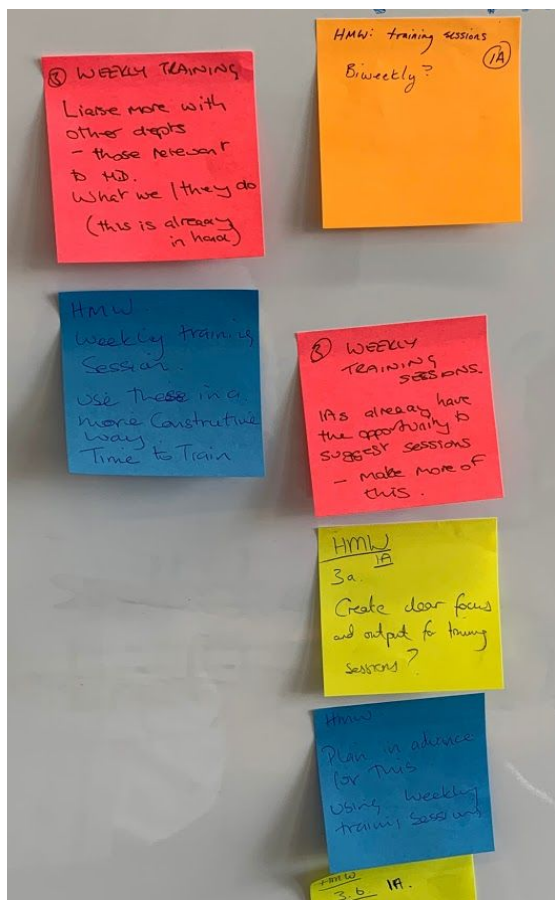 ③ WEEKLY TRAINING
Liaise more with
other depts
- those relevant
to MD.
What we / they do
(this is already
in hand)
HMW: training sessions
1A
Biweekly?
HMW
Weekly training
Session.
Use these in a
more Constructive
way
Time to Train
③ WEEKLY
TRAINING
SESSIONS.
IAs already have
the opportunity to
suggest sessions
- make more of
this.
HMW
IA
3a.
Create clear focus
and output for training
sessions?
HMW
Plan in advance
for this
Using Weekly
training Sessions
HMW
3.b IA.